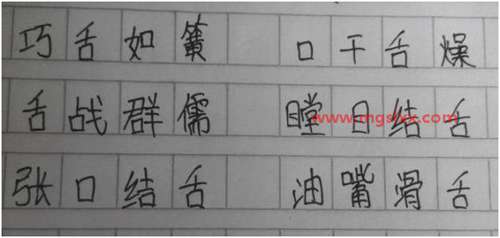 巧舌如簧 口干舌燥
舌战群儒 瞠日结舌
张口结舌 油嘴滑舌
www.mgsyxx.com